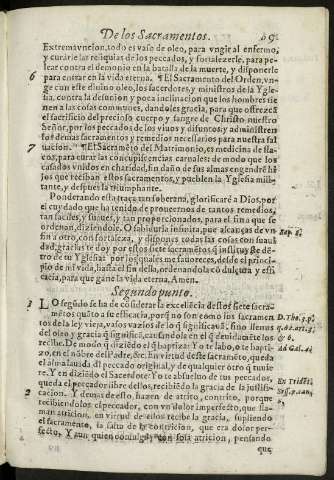 De los Sacramentos. 69
Extremavncion, todo es vaso de oleo, para vngir al enfermo,
y curarle las reliquias de los peccados, y fortalezerle, para pe-
lear contra el demonio en la batalla de la muerte, y disponerle
6 para entrar en la vida eterna. ¶ El Sacramento del Orden, vn-
ge con este diuino oleo, los sacerdotes, y ministros de la Ygle
sia, contra la desunion y poca inclinacion que los hombres tie
nen a las cosas comunes, dandoles gracia, para que offrezcã
el sacrificio del precioso cuerpo y sangre de Christo nuestro
Señor, por los peccados de los viuos y difuntos, y administren
los demas sacramentos y remedios necessarios para nuestra sal
7 uacion. ¶ El Sacramẽto del Matrimonio, es medicina de fla-
cos, para curar las concupiscencias carnales: de modo que los
casados vnidos en charidad, sin daño de sus almas engendrẽ hi
jos que reciban estos sacramentos, y pueblen la Yglesia mili-
tante, y despues la triumphante.
Ponderando esta traça tan soberana, glorificarè a Dios, por
el cuydado que ha tenido de proueernos de tantos remedios,
tan faciles, y suaues, y tan proporcionados, para el fin a que se
ordenan, diziendole. O sabiduria infinita, que alcanças de vn
fin a otro, con fortaleza, y dispones todas las cosas con suaui
dad, gracias te doy por estos siete sacramẽtos q̃ instituyste dẽ-
tro de tu Yglesia: por los quales me fauoreces, desde el princi-
pio de mi vida, hasta el fin della, ordenandola cõ dulçura y effi
cacia, para que gane la vida eterna, Amen.
Sap. 8.
Segundo punto.
1 LO segũdo se ha de cõsiderar la excelẽcia destos siete sacra-
mẽtos quãto a su eficacia, porq̃ no son como los sacramen
tos de la ley vieja, vasos vazios de lo q̃ significauã, sino llenos
del oleo y gracia q̃ significã, causandola en el q̃ deuidamẽte los
recibe. De modo q̃ diziẽdo el q̃ baptiza: Yo te labo, o te bapti-
zo, en el nõbre del Padre, &c. En virtud deste sacramẽto, queda
el alma lauada del peccado original, y de qualquier otro q̃ tuuie
re. Y en diziẽdo el Sacerdote: Yo te absueluo de tus peccados,
queda el peccador libre dellos, recibiẽdo la gracia de la justifi-
2 cacion. Y demas de esto, hazen de atrito, contrito, porque
recibiendolos el peccador, con vn dolor imperfecto, que lla-
man atricion, en virtud de ellos recibe la gracia, supliendo
el sacramento, la falta de la contricion, que era dolor per-
fecto. Y aun quien comulga con sola atricion, pensando
que
D. Th. 3. p.
q. 62. art. 1.
&
ad Gal. 4.
Ex Tridẽt.
sess.